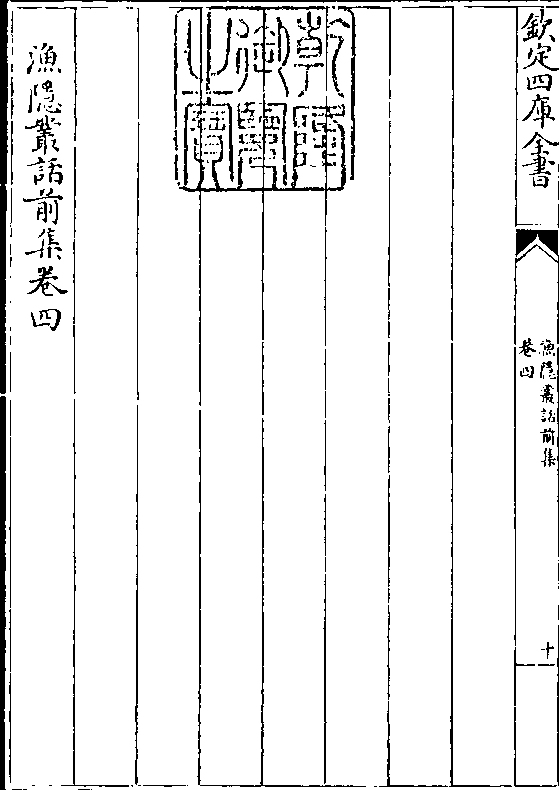 欽定四庫全書
漁隱叢話前集
卷四
十
乾隆御覽之寶
漁隱叢話前集卷四